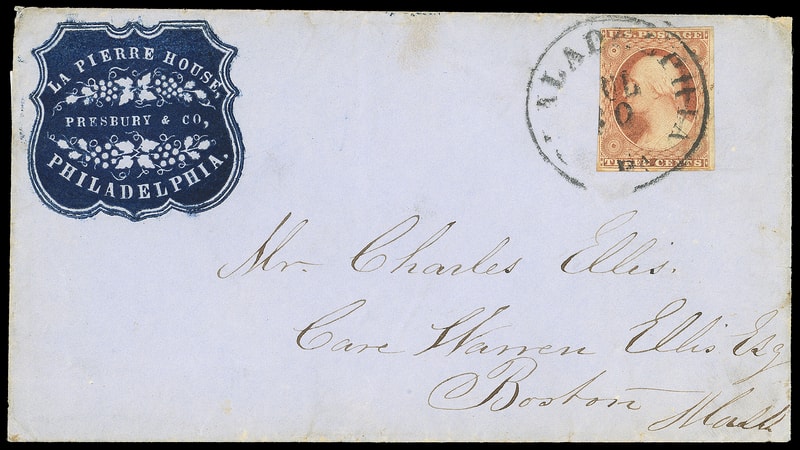 LA PIERRE HOUSE,
PRESBURY & CO,
PHILADELPHIA.
U.S. POSTAGE
THREE CENTS
Pa
Mr. Charles Ellis.
Care Warren Ellis Esq
Boston
Mass